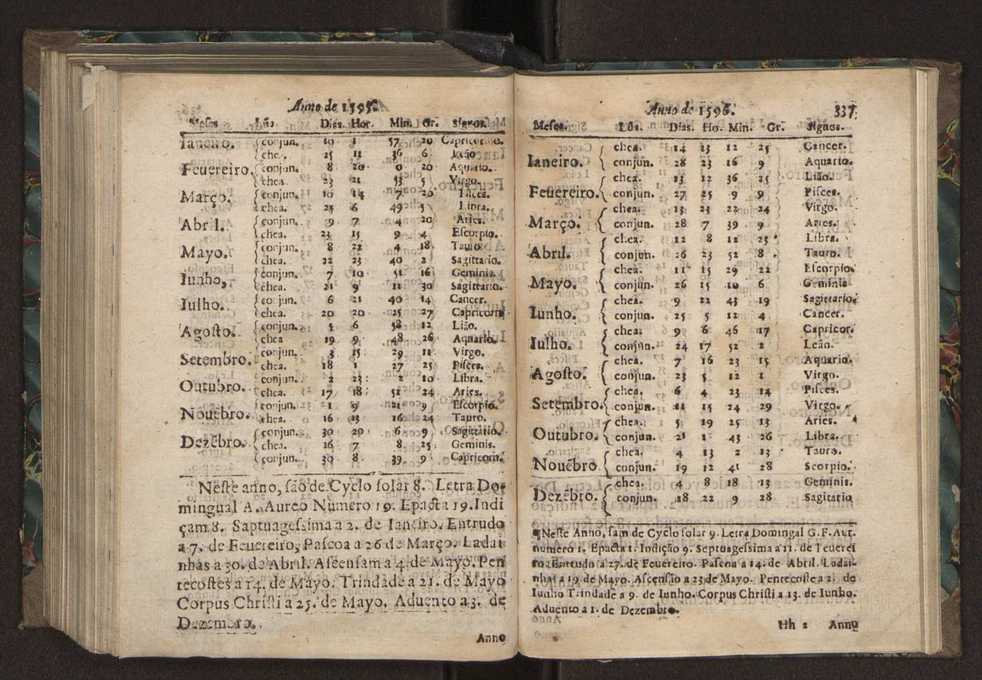 Anno de 1595.
Meses. Lũa. Dias. Hor. Min. Gr. Signos.
Ianeiro. conjun. 10 1 57 20 Capricornio.
chea. 25 11 36 6 Leão
Feuereiro. conjun. 8 20 0 20 Aquario.
chea. 23 21 53 5 Virgo.
Março. conjun. 10 14 7 20 Pisces.
chea. 25 6 49 5 Libra.
Abril. conjun. 9 7 4 20 Aries.
chea. 23 15 9 4 Escorpio.
Mayo. conjun. 8 22 4 18 Tauro
chea. 22 23 40 2 Sagittario.
Iunho, conjun. 7 10 51 16 Geminis.
chea. 21 9 11 30 Sagittario.
Iulho. conjun. 6 21 40 14 Cancer.
chea. 20 20 25 27 Capricorn
Agosto. conjun. 5 6 58 12 Lião.
chea 19 9 48 26 Aquario.
Setembro. conjun. 3 15 29 11 Virgo.
chea. 18 1 27 25 Pisces.
Outubro. conjun. 2 23 2 10 Libra.
chea. 17 18 51 24 Aries.
Nouẽbro. conjun. 1 9 21 9 Escorpio.
chea. 16 13 16 24 Tauro.
Dezẽbro. conjun. 30 20 6 9 Sagittario.
chea. 16 7 8 25 Geminis.
conjun. 30 8 39 9 Capricorn.
Neste anno, são de Cyclo solar 8. Letra Do-
mingual A. Aureo Numero 19. Epacta 19. Indi
çam 8. Saptuagessima a 2. de Ianeiro. Entrudo
a 7. de Feuereiro, Pascoa a 26 de Março. Ladai
nhas a 30. de Abril. Ascensam a 4. de Mayo. Pen
tecostes a 14. de Mayo. Trindade a 21. de Mayo
Corpus Christi a 25. de Mayo. Aduento a 3. de
Dezembro.
Anno
Anno de 1596. 337
Meses. Lũs. Dias. Ho. Min. Gr. Signos.
Ianeiro. chea. 14 23 12 25 Cancer.
conjun. 28 23 16 9 Aquario.
Feuereiro. chea. 13 12 36 25 Lião.
conjun. 27 25 9 9 Pisces.
Março. chea. 13 23 22 24 Virgo.
conjun. 28 7 39 9 Aries.
Abril. chea. 12 8 12 25 Libra.
conjun. 26 23 52 8 Tauro.
Mayo. chea. 11 15 29 22 Escorpio.
conjun. 26 15 10 6 Geminis
Iunho. chea. 9 22 43 19 Sagittario.
conjun. 25 5 12 4 Cancer.
Iulho. chea: 9 6 46 17 Capricor.
conjun. 24 17 52 2 Leão.
Agosto. chea. 7 16 23 15 Aquario.
conjun. 23 5 12 1 Virgo.
Setembro. chea. 6 4 23 14 Pisces.
conjun. 21 15 24 29 Virgo.
Outubro. chea. 5 19 25 13 Aries.
conjun. 21 1 43 26 Libra.
Nouẽbro chea. 4 13 2 13 Tauro.
conjun. 19 12 41 28 Scorpio.
Dezẽbro. chea. 4 8 18 13 Geminis.
conjun. 18 22 9 28 Sagitario
Neste Anno, sam de Cyclo solar 9. Letra Domingal G. F. Aur.
numero 1. Epacta 1. Indição 9. Septuagessima a 11. de Feuerei
ro. Entrudo a 27. de Feuereiro. Pascoa a 14. de Abril. Ladai-
nhas a 19 de Mayo. Ascensão a 23 de Mayo. Pentecoste a 2. de
Iunho Trindade a 9. de Iunho. Corpus Christi a 13. de Iunho.
Aduento a 1. de Dezembro.
Hh 2 Anno